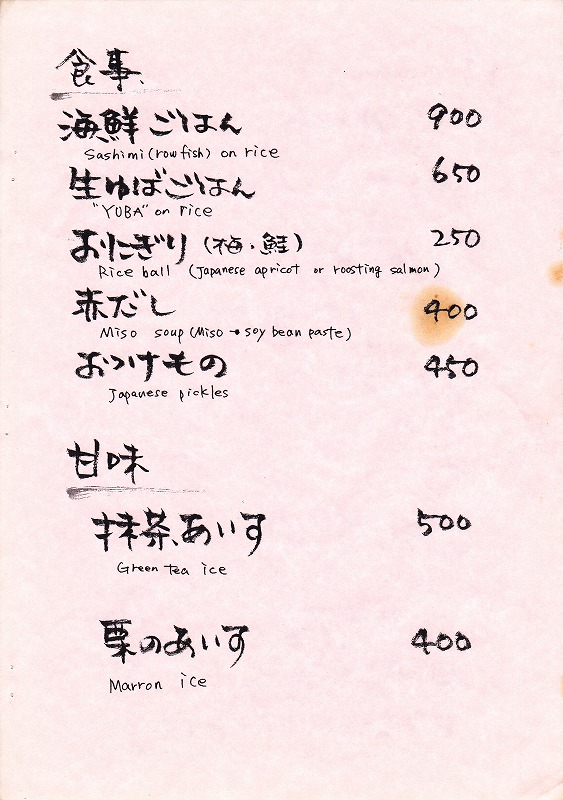 食事、
海鮮ごはん 900
Sashimi (row fish) on rice
生ゆばごはん 650
"YUBA" on rice
おにぎり (梅・鮭) 250
Rice ball (Japanese apricot or roosting salmon)
赤だし 400
Miso soup (Miso → soy bean paste)
おつけもの 450
Japanese pickles
甘味
抹茶、あいす 500
Green tea ice
栗のあいす 400
Marron ice